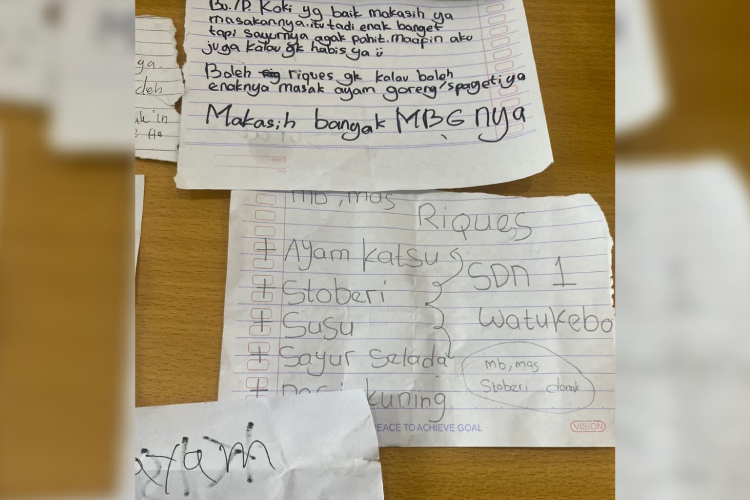 Bu./P. Koki yg baik makasih ya
masakannya.itu tadi enak banget
tapi sayurnya agak pahit.maapin aku
juga kalau gk habis ya
Boleh riques gk kalau boleh
enaknya masak ayam goreng/spagetiya
Makasih banyak MBG nya
ya.
mb, mas
Riques
+ Ayam katsu
+ Stoberi
+ Susu
+ Sayur Selada
kuning
SDN 1
Watukebo
mb, mas
Stoberi
PEACE TO ACHIEVE GOAL
VISION
ayam